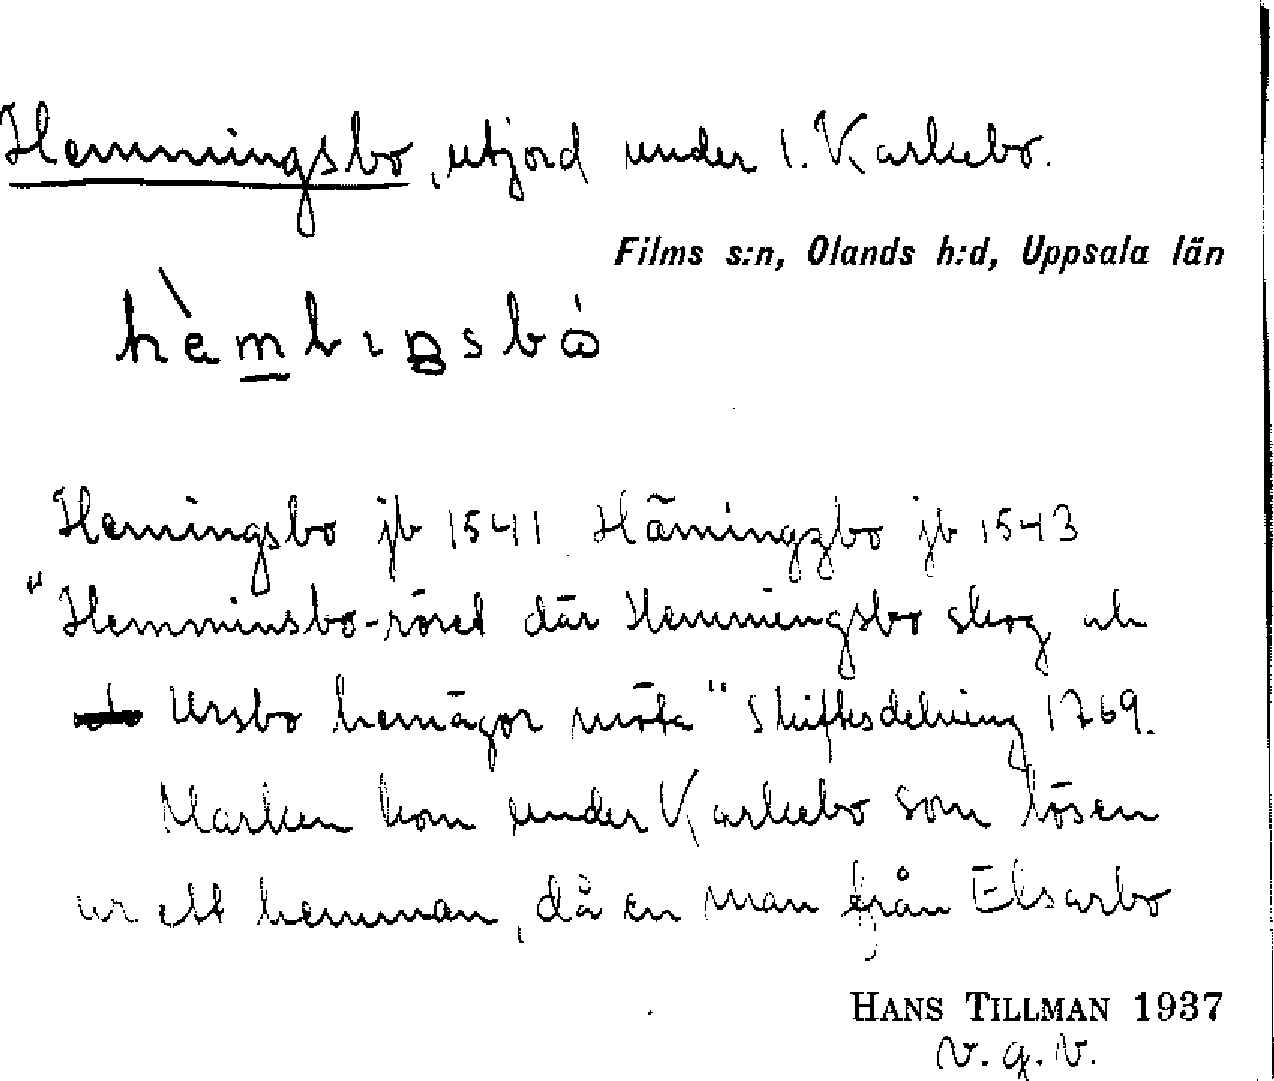 Hemmingsbo, utjord under 1. Karkebo.
Films s:n, Olands h:d, Uppsala län
Hemingsbo jb 1541 Hämingzbo jb 1543
"Hemminsbo-röret där Hemmingsbo skog och
Ursbo hemägor möta" Skiftesdelning 1769.
Marken kom under Karkebo som lösen
ur ett hemman, då en man från Elsarbo
HANS TILLMAN 1937
V. g. V.